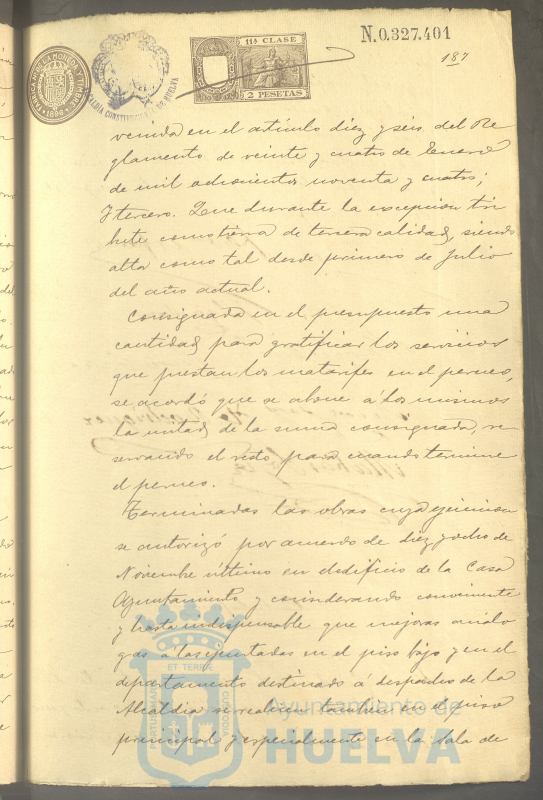 N.0.327.401
11ª CLASE
2 PESETAS
187
FABRICA NACIONAL DE LA MONEDA Y TIMBRE
1896
ALCALDIA CONSTITUCIONAL DE HUELVA
venida en el artículo diez y seis del Re
glamento de veinte y cuatro de Enero
de mil ochocientos noventa y cuatro;
Y tercero. Que durante la excepcion tri
bute como tierra de tercera calidad, siendo
alta como tal desde primero de Julio
del año actual.
Consignada en el presupuesto una
cantidad para gratificar los servicios
que prestan los matarifes en el perneo,
se acordó que se abone á los mismos
la mitad de la suma consignada, re
servando el resto para cuando termine
el perneo.
Terminadas las obras cuya ejecucion
se autorizó por acuerdo de diez y ocho de
Noviembre último en el edificio de la Casa
Ayuntamiento y considerando conveniente
y hasta indispensable que mejoras análo
gas á las ejecutadas en el piso bajo y en el
departamento destinado á despacho de la
Alcaldia se realicen tambien en el piso
principal y especialmente en la Sala de
Ayuntamiento de
HUELVA